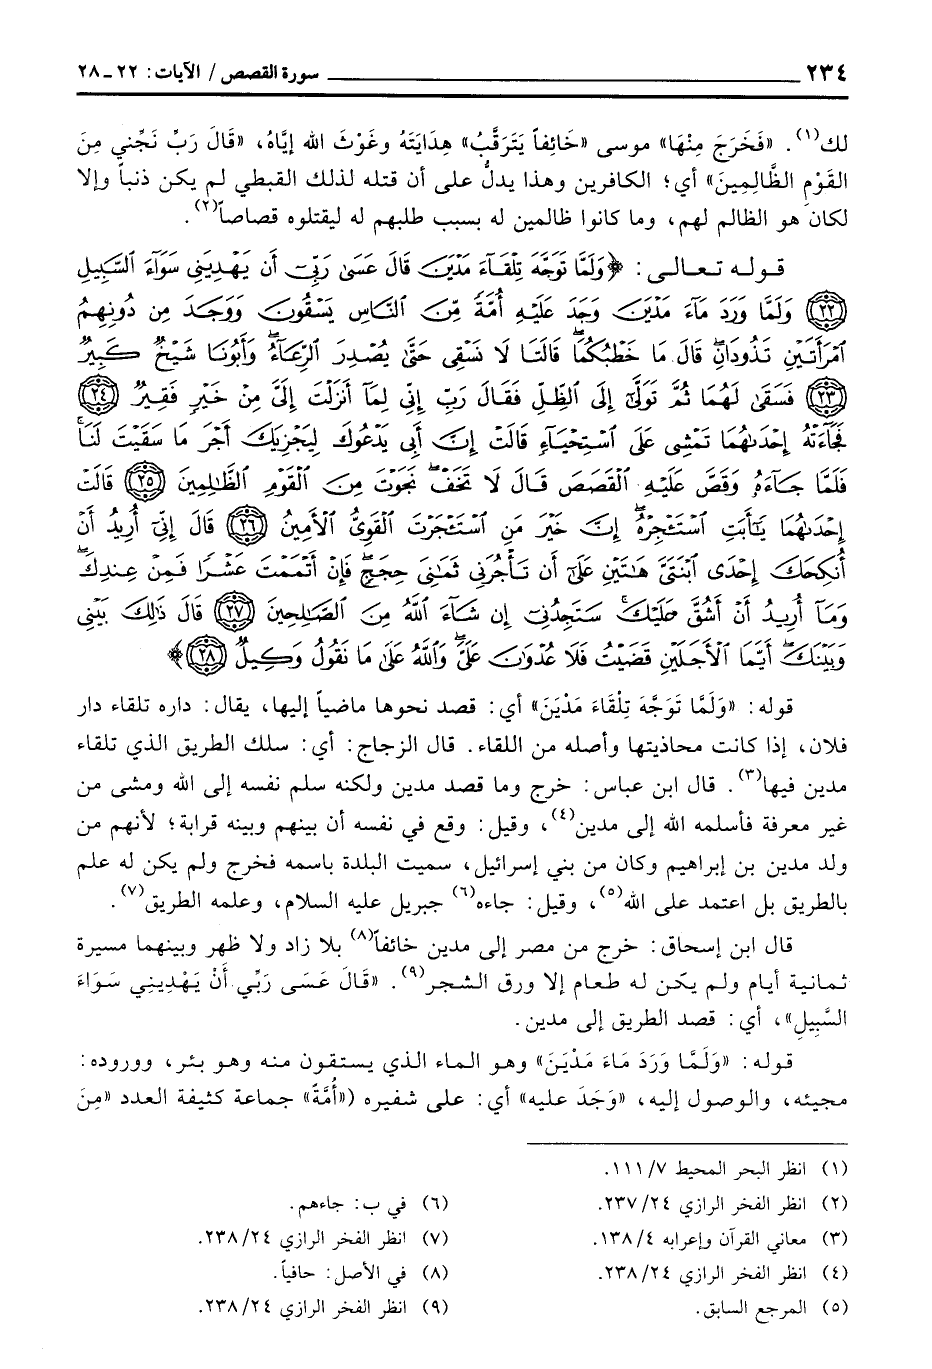 ٢٣٤ سورة القصص / الآيات: ٢٢ - ٢٨
لك(١). «فَخَرَجَ مِنْهَا» موسى «خَائِفاً يَتَرَقَّبُ» هِدَايَتَهُ وغَوْثَ الله إيَّاهُ، «قَالَ رَبِّ نَجِّني مِنَ
القَوْمِ الظَّالِمِينَ» أي؛ الكافرين وهذا يدلُّ على أن قتله لذلك القبطي لم يكن ذنباً وإلا
لكان هو الظالم لهم، وما كانوا ظالمين له بسبب طلبهم له ليقتلوه قصاصاً(٢).
قوله تعالى: ﴿وَلَمَّا تَوَجَّهَ تِلْقَآءَ مَدْيَنَ قَالَ عَسَىٰ رَبِّىٓ أَن يَهْدِيَنِى سَوَآءَ ٱلسَّبِيلِ
﴿٢٢﴾ وَلَمَّا وَرَدَ مَآءَ مَدْيَنَ وَجَدَ عَلَيْهِ أُمَّةً مِّنَ ٱلنَّاسِ يَسْقُونَ وَوَجَدَ مِن دُونِهِمُ
ٱمْرَأَتَيْنِ تَذُودَانِۖ قَالَ مَا خَطْبُكُمَاۖ قَالَتَا لَا نَسْقِى حَتَّىٰ يُصْدِرَ ٱلرِّعَآءُۖ وَأَبُونَا شَيْخٌ كَبِيرٌ
﴿٢٣﴾ فَسَقَىٰ لَهُمَا ثُمَّ تَوَلَّىٰٓ إِلَى ٱلظِّلِّ فَقَالَ رَبِّ إِنِّى لِمَآ أَنزَلْتَ إِلَىَّ مِنْ خَيْرٍ فَقِيرٌ ﴿٢٤﴾
فَجَآءَتْهُ إِحْدَىٰهُمَا تَمْشِى عَلَى ٱسْتِحْيَآءٍ قَالَتْ إِنَّ أَبِى يَدْعُوكَ لِيَجْزِيَكَ أَجْرَ مَا سَقَيْتَ لَنَاۚ
فَلَمَّا جَآءَهُۥ وَقَصَّ عَلَيْهِ ٱلْقَصَصَ قَالَ لَا تَخَفْۖ نَجَوْتَ مِنَ ٱلْقَوْمِ ٱلظَّٰلِمِينَ ﴿٢٥﴾ قَالَتْ
إِحْدَىٰهُمَا يَٰٓأَبَتِ ٱسْتَـْٔجِرْهُۖ إِنَّ خَيْرَ مَنِ ٱسْتَـْٔجَرْتَ ٱلْقَوِىُّ ٱلْأَمِينُ ﴿٢٦﴾ قَالَ إِنِّىٓ أُرِيدُ أَنْ
أُنكِحَكَ إِحْدَى ٱبْنَتَىَّ هَٰتَيْنِ عَلَىٰٓ أَن تَأْجُرَنِى ثَمَٰنِىَ حِجَجٍۖ فَإِنْ أَتْمَمْتَ عَشْرًا فَمِنْ عِندِكَۖ
وَمَآ أُرِيدُ أَنْ أَشُقَّ عَلَيْكَۚ سَتَجِدُنِىٓ إِن شَآءَ ٱللَّهُ مِنَ ٱلصَّٰلِحِينَ ﴿٢٧﴾ قَالَ ذَٰلِكَ بَيْنِى
وَبَيْنَكَۖ أَيَّمَا ٱلْأَجَلَيْنِ قَضَيْتُ فَلَا عُدْوَٰنَ عَلَىَّۖ وَٱللَّهُ عَلَىٰ مَا نَقُولُ وَكِيلٌ ﴿٢٨﴾﴾
قوله: «وَلَمَّا تَوَجَّهَ تِلْقَاءَ مَدْيَنَ» أي: قصد نحوها ماضياً إليها، يقال: داره تلقاء دار
فلان، إذا كانت محاذيتها وأصله من اللقاء. قال الزجاج: أي: سلك الطريق الذي تلقاء
مدين فيها(٣). قال ابن عباس: خرج وما قصد مدين ولكنه سلم نفسه إلى الله ومشى من
غير معرفة فأسلمه الله إلى مدين(٤)، وقيل: وقع في نفسه أن بينهم وبينه قرابة؛ لأنهم من
ولد مدين بن إبراهيم وكان من بني إسرائيل، سميت البلدة باسمه فخرج ولم يكن له علم
بالطريق بل اعتمد على الله(٥)، وقيل: جاءه(٦) جبريل عليه السلام، وعلمه الطريق(٧).
قال ابن إسحاق: خرج من مصر إلى مدين خائفاً(٨) بلا زاد ولا ظهر وبينهما مسيرة
ثمانية أيام ولم يكن له طعام إلا ورق الشجر(٩). «قَالَ عَسَى رَبِّي أَنْ يَهْدِينِي سَوَاءَ
السَّبِيلِ»، أي: قصد الطريق إلى مدين.
قوله: «وَلَمَّا وَرَدَ مَاءَ مَدْيَنَ» وهو الماء الذي يستقون منه وهو بئر، ووروده:
مجيئه، والوصول إليه، «وَجَدَ عليه» أي: على شفيره («أُمَّةً» جماعة كثيفة العدد «مِنَ
(١) انظر البحر المحيط ٧/١١١.
(٢) انظر الفخر الرازي ٢٤/٢٣٧.
(٣) معاني القرآن وإعرابه ٤/١٣٨.
(٤) انظر الفخر الرازي ٢٤/٢٣٨.
(٥) المرجع السابق.
(٦) في ب: جاءهم.
(٧) انظر الفخر الرازي ٢٤/٢٣٨.
(٨) في الأصل: حافياً.
(٩) انظر الفخر الرازي ٢٤/٢٣٨.